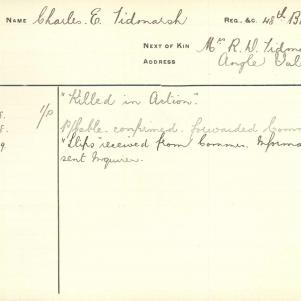 NAME Charles. E. Tidmarsh REG. &C. 48th B
NEXT OF KIN Mrs R. W. Tidm
ADDRESS Angle Val
"Killed in Action".
1/P
8. confirmed. forwarded Comm
9 "Slips" received from Commr. Informa
sent Inquirer.